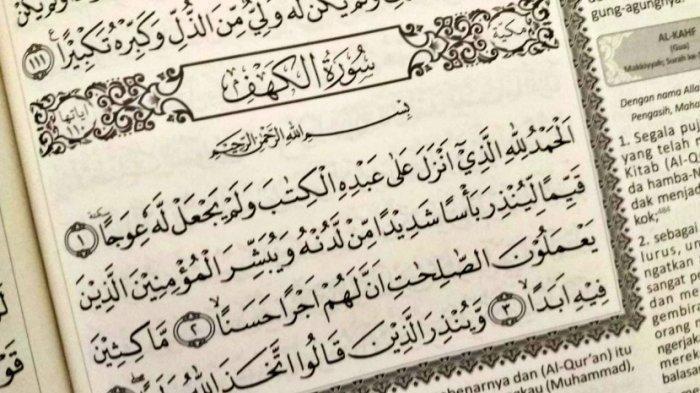 لَهٗ وَلِيٌّ مِّنَ الذُّلِّ وَكَبِّرْهُ تَكْبِيْرًا ࣖ ١١١
مكيّة
سُوْرَةُ الْكَهْفِ
اٰياتها ١١٠
بِسْمِ اللّٰهِ الرَّحْمٰنِ الرَّحِيْمِ
اَلْحَمْدُ لِلّٰهِ الَّذِيْٓ اَنْزَلَ عَلٰى عَبْدِهِ الْكِتٰبَ وَلَمْ يَجْعَلْ لَّهٗ عِوَجًا ۜ ١
قَيِّمًا لِّيُنْذِرَ بَأْسًا شَدِيْدًا مِّنْ لَّدُنْهُ وَيُبَشِّرَ الْمُؤْمِنِيْنَ الَّذِيْنَ
يَعْمَلُوْنَ الصّٰلِحٰتِ اَنَّ لَهُمْ اَجْرًا حَسَنًا ۙ ٢ مَّاكِثِيْنَ
فِيْهِ اَبَدًا ۙ ٣ وَّيُنْذِرَ الَّذِيْنَ قَالُوا اتَّخَذَ اللّٰهُ
gung-agungnya.
AL-KAHF
(Gua)
Makkiyyah; Surah ke-
Dengan nama Alla
Pengasih, Maha
1. Segala puj
yang telah m
Kitab (Al-Q
da hamba-N
dak menjad
kok;
2. sebagai
lurus, u
ngatkan
sangat p
dan me
gembira
orang
ngerjak
mereka
balasan
benarnya dan (Al-Qur'an) itu
gkau (Muhammad),